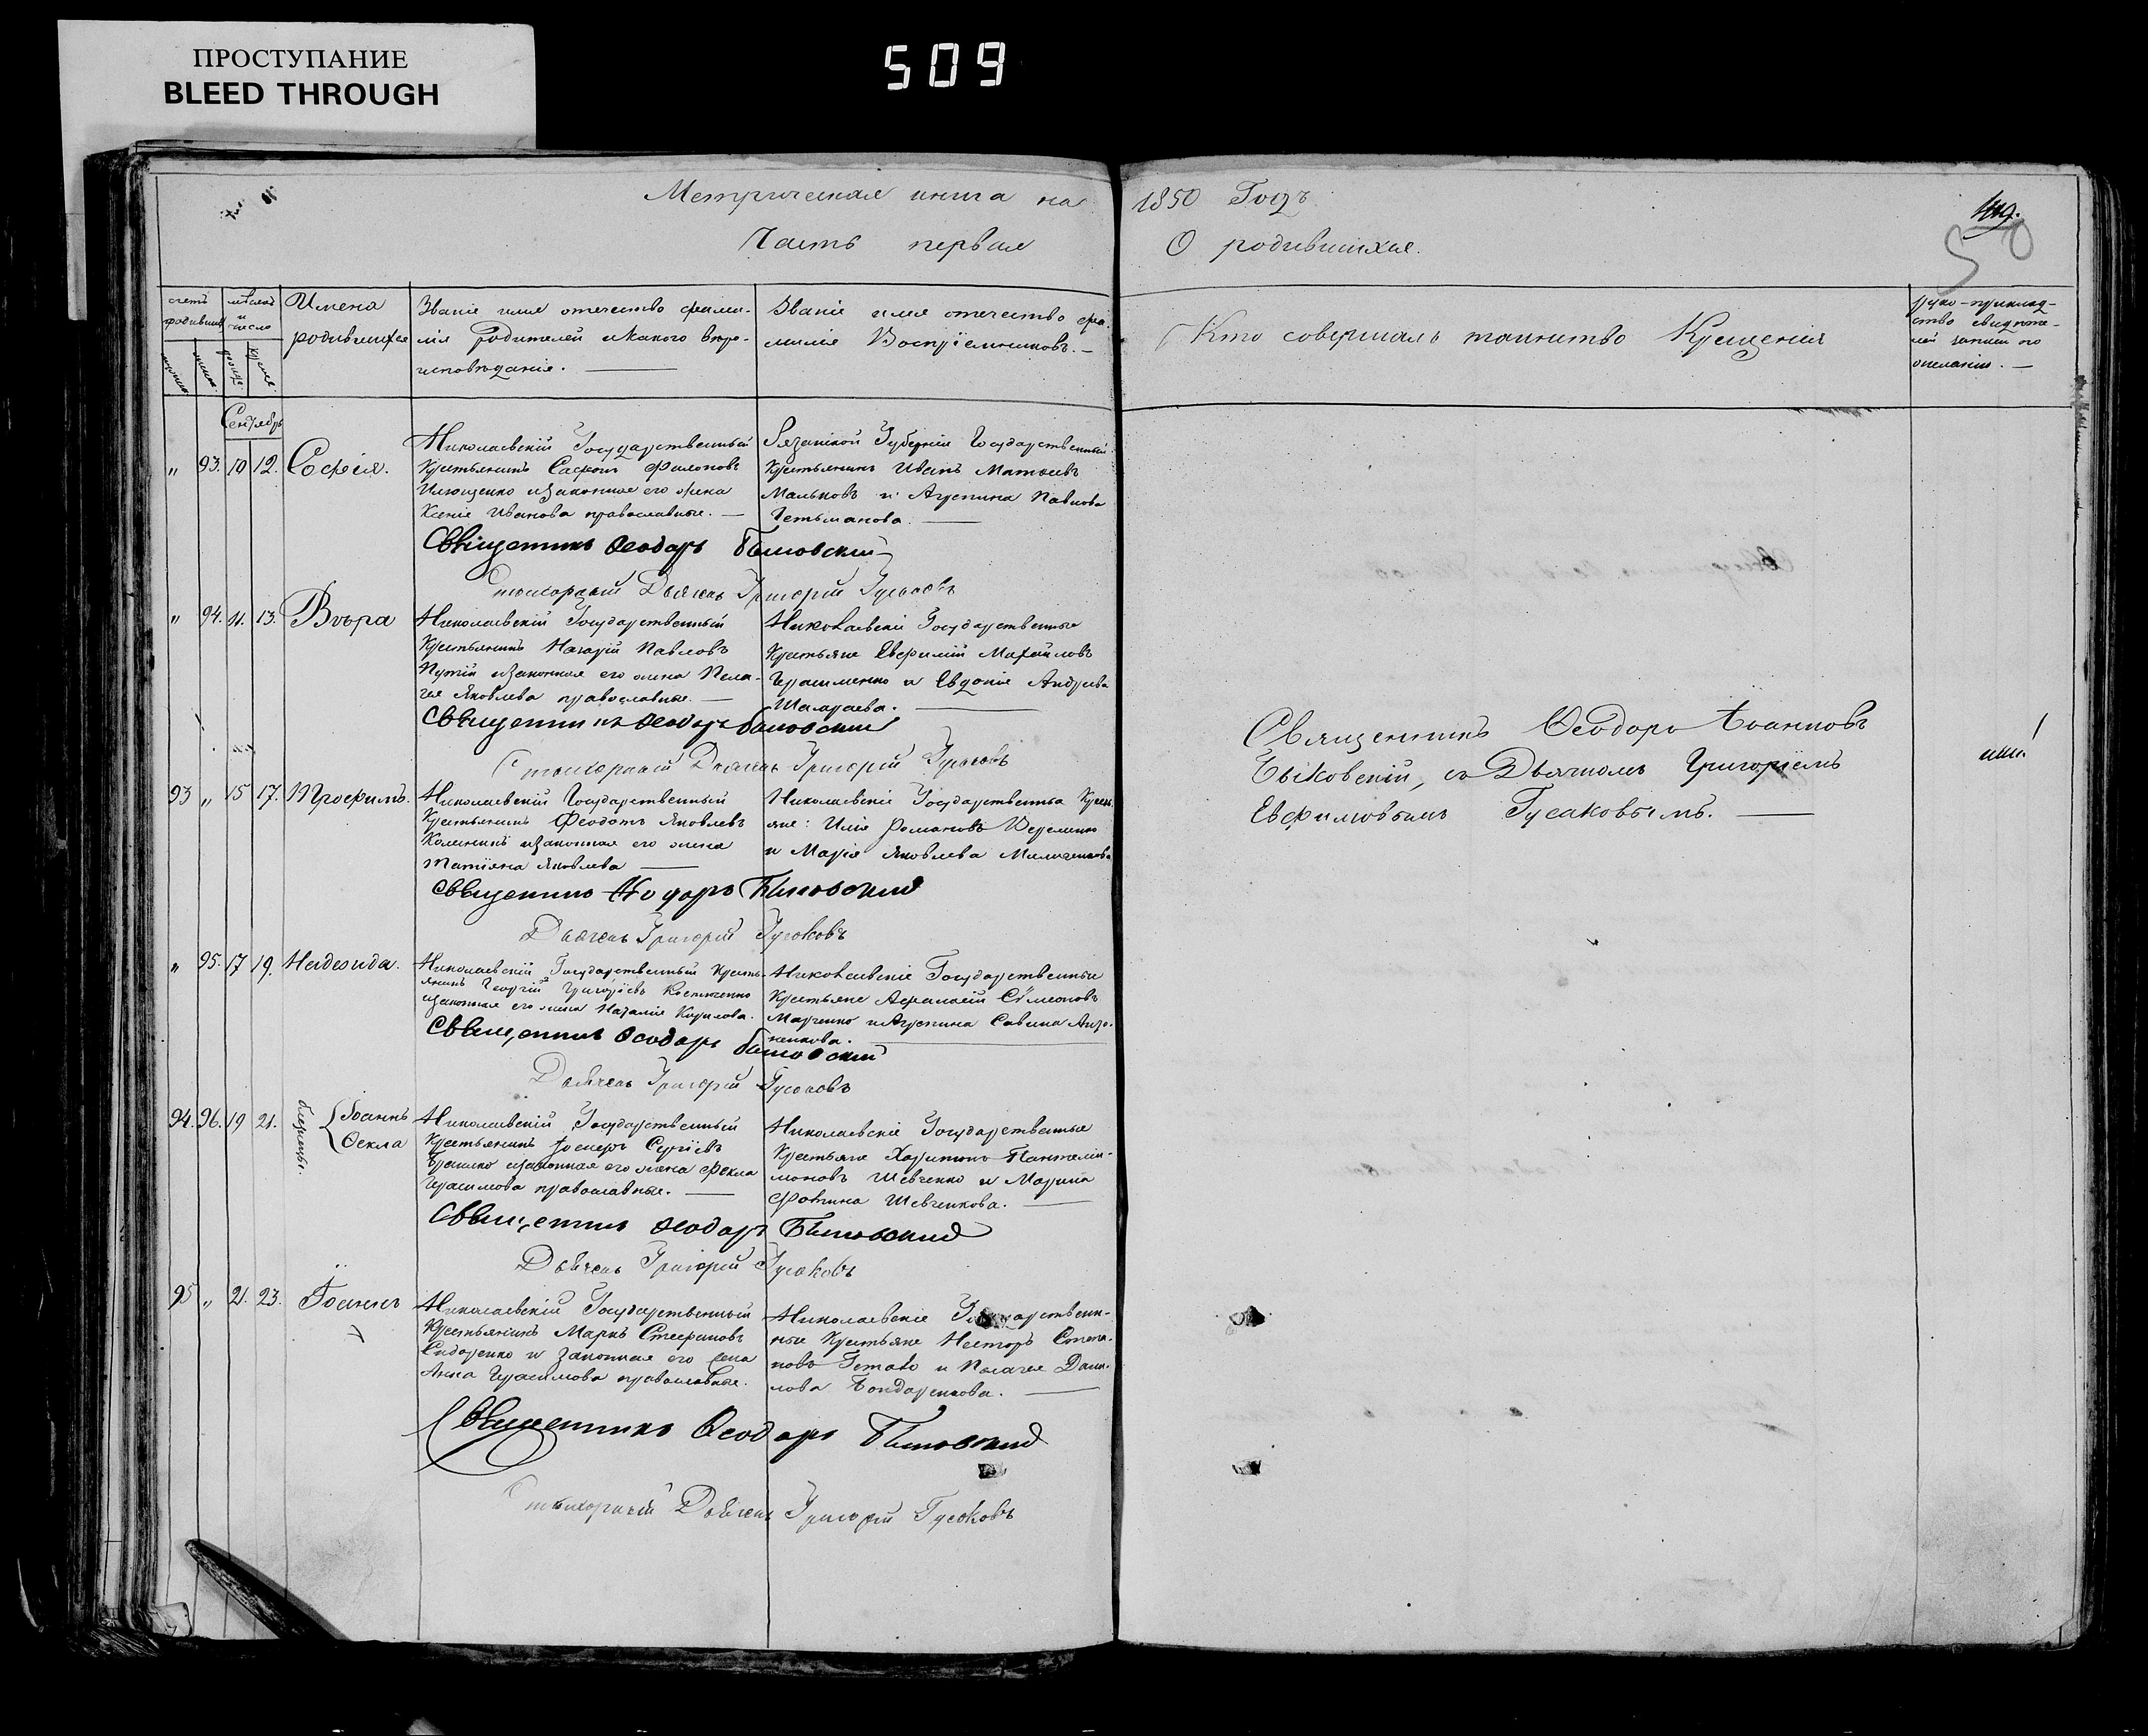 ПРОСТУПАНИЕ
BLEED THROUGH
509
Метрическая книга на 1850 Годъ
Часть первая О родившихся.
счетъ родившихся
мѣсяцъ и число
Имена родившихся
Званіе имя отечество фами-
лія Родителей и какого вѣро-
исповѣданія.
Званіе имя отечество фа-
милія Воспріемниковъ.
Кто совершалъ таинство Крещенія
руко-приклад-
ство свидѣте-
лей записи по
желанію.
Сентябрь
" 93. 10 12. Софія.
Николаевскій Государственный
Крестьянинъ Сафонъ Филоновъ
Илющенко и законная его жена
Ксенія Иванова православные.
Рязанской Губерніи Государственный
Крестьянинъ Иванъ Матвеевъ
Мальковъ и Агрепина Павлова
Гетьманова.
Священникъ Ѳеодоръ Быковскій
Стихорный Дьячекъ Григорій Гусаковъ
" 94. 11. 13. Вѣра
Николаевскій Государственный
Крестьянинъ Назарій Павловъ
законная его жена Пела-
гея Яковлева православные.
Николаевскіе Государственные
Крестьяне Евфимій Михайловъ
Герасименко и Евдокія Андреева
Священникъ Ѳеодоръ Быковскій
Стихорный Дьячекъ Григорій Гусаковъ
93 " 15 17. Трофимъ.
Николаевскій Государственный
Крестьянинъ Феодотъ Яковлевъ
Калининъ и законная его жена
Татіяна Яковлева
Николаевскіе Государственные Кресть-
яне: Илія Романовъ
и Марія Яковлева
Священникъ Ѳеодоръ Быковскій
Дьячекъ Григорій Гусаковъ
" 95. 17 19. Надежда.
Николаевскій Государственный Кресть-
янинъ Георгій Григоріевъ Костюченко
законная его жена Наталія Кирилова.
Николаевскіе Государственные
Крестьяне Афанасій Сѵмеоновъ
Марченко и Агрепина Савина Анто-
ненкова.
Священникъ Ѳеодоръ Быковскій
Дьячекъ Григорій Гусаковъ
94. 96. 19 21. близнецы. Іоаннъ
Ѳекла
Николаевскій Государственный
Крестьянинъ Іосифъ Сергіевъ
законная его жена Фекла
Герасимова православные.
Николаевскіе Государственные
Крестьяне Харитонъ Пантелей-
моновъ Шевченко и Марина
Фотина Шевченкова.
Священникъ Ѳеодоръ Быковскій
Дьячекъ Григорій Гусаковъ
95 " 21. 23. Іоаннъ
Николаевскій Государственный
Крестьянинъ Маркъ Стефановъ
Сидоренко и законная его жена
Анна Герасимова православные.
Николаевскіе Государствен-
ные Крестьяне Несторъ Степа-
новъ и Пелагея Дани-
лова Бондаренкова.
Священникъ Ѳеодоръ Быковскій
Стихорный Дьячекъ Григорій Гусаковъ
Священникъ Ѳеодоръ Іоанновъ
Быковскій, съ Дьячкомъ Григоріемъ
Евфимовымъ Гусаковымъ.